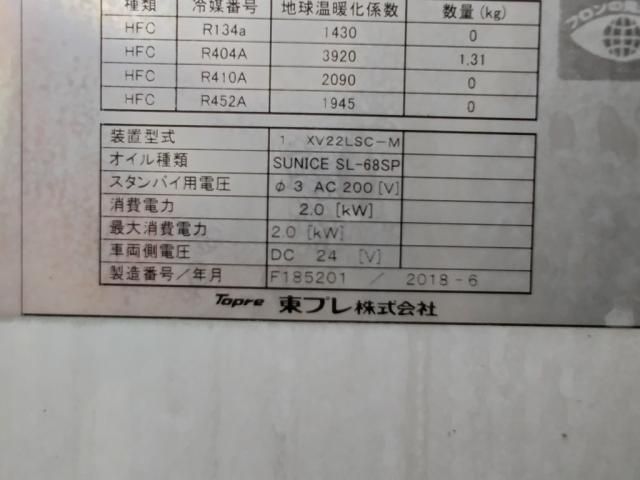 種類 冷媒番号 地球温暖化係数 数量(kg)
HFC R134a 1430 0
HFC R404A 3920 1.31
HFC R410A 2090 0
HFC R452A 1945 0
フロンの
装置型式 1. XV22LSC-M
オイル種類 SUNICE SL-68SP
スタンバイ用電圧 φ3 AC200[V]
消費電力 2.0 [kW]
最大消費電力 2.0 [kW]
車両側電圧 DC 24 [V]
製造番号/年月 F185201 / 2018-6
Topre 東プレ株式会社